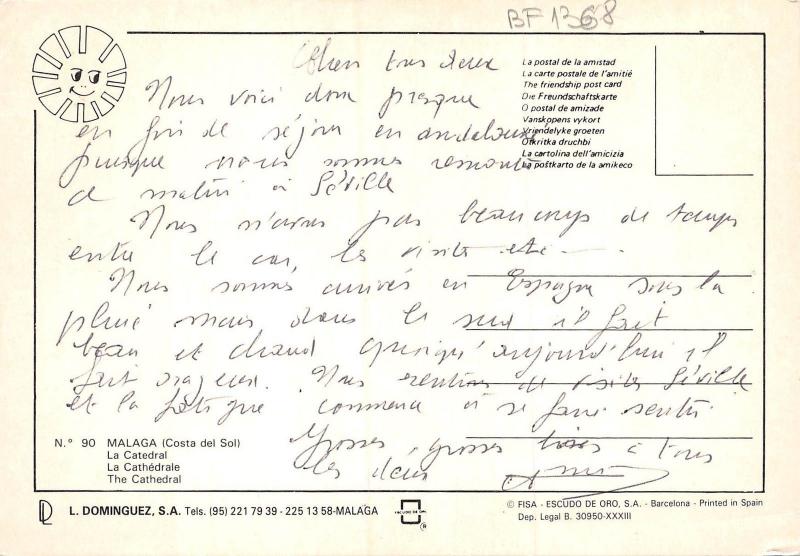 BF 1368
Chers tous deux
Nous voici donc presque
en fin de séjour en andalousie
puisque nous sommes remontés
ce matin à Séville
Nous n'avons pas beaucoup de temps
entre le car, les visites etc
Nous sommes arrivés en Espagne sous la
pluie mais dans le sud il fait
beau et chaud quoiqu'aujourd'hui il
fait orageux. Nous rentrons de visiter Séville
et la fatigue commence à se faire sentir
Grosses, grosses bises à tous
les deux
La postal de la amistad
La carte postale de l'amitié
The friendship post card
Die Freundschaftskarte
O postal de amizade
Vanskopens vykort
Vriendelyke groeten
Otkritka druchbi
La cartolina dell'amicizia
La postkarto de la amikeco
N.° 90 MALAGA (Costa del Sol)
La Catedral
La Cathédrale
The Cathedral
L. DOMINGUEZ, S.A. Tels. (95) 221 79 39 - 225 13 58-MALAGA
ESCUDO DE ORO
© FISA - ESCUDO DE ORO, S.A. - Barcelona - Printed in Spain
Dep. Legal B. 30950-XXXIII